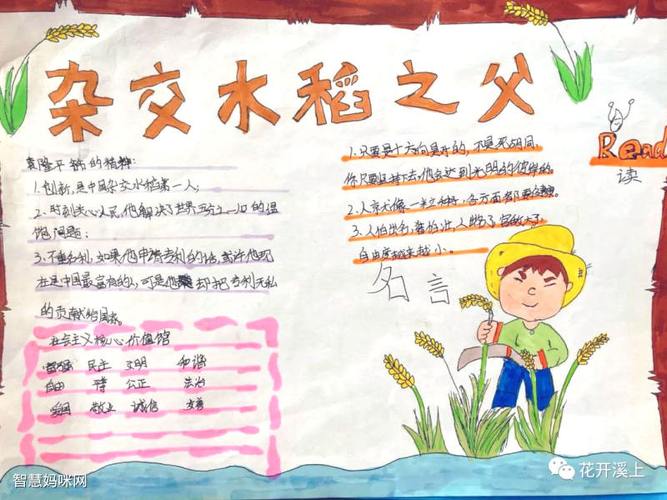 杂交水稻之父
袁隆平 的精神:
1.创新,是中国杂交水稻第一人;
2.时刻关心人民,他解决了世界三分之一人口的温
饱问题;
3.不重名利,如果他申请专利的话,或许他现
在是中国最富有的人,可是他 却把专利无私
的贡献给国家。
社会主义核心价值馆
富强 民主 文明 和谐
自由 公正 法治
爱国 敬业 诚信 友善
1.只要是十六向是开的,不是死胡同
你只要坚持下去,他会达到光明的彼岸的
2.人京犬像一米之种子,各方面都要
3.人怕出名猪怕壮,人出了名
自由度越来越小。
名言
Read
读
智慧妈咪网
花开溪上